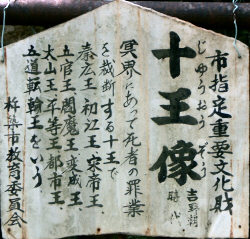 市指定重要文化財
じゅうおうぞう
十王像
吉野朝
時代
冥界にあって死者の罪業
を裁断する十王で
秦広王初江王宋帝王
五官王閻魔王変成王
太山王平等王都市王
五道転輪王をいう
杵築市教育委員会